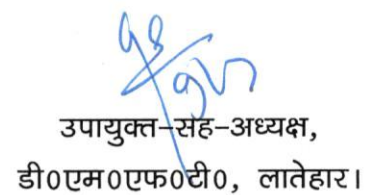 उपायुक्त-सह-अध्यक्ष,
डी0एम0एफ0टी0, लातेहार।